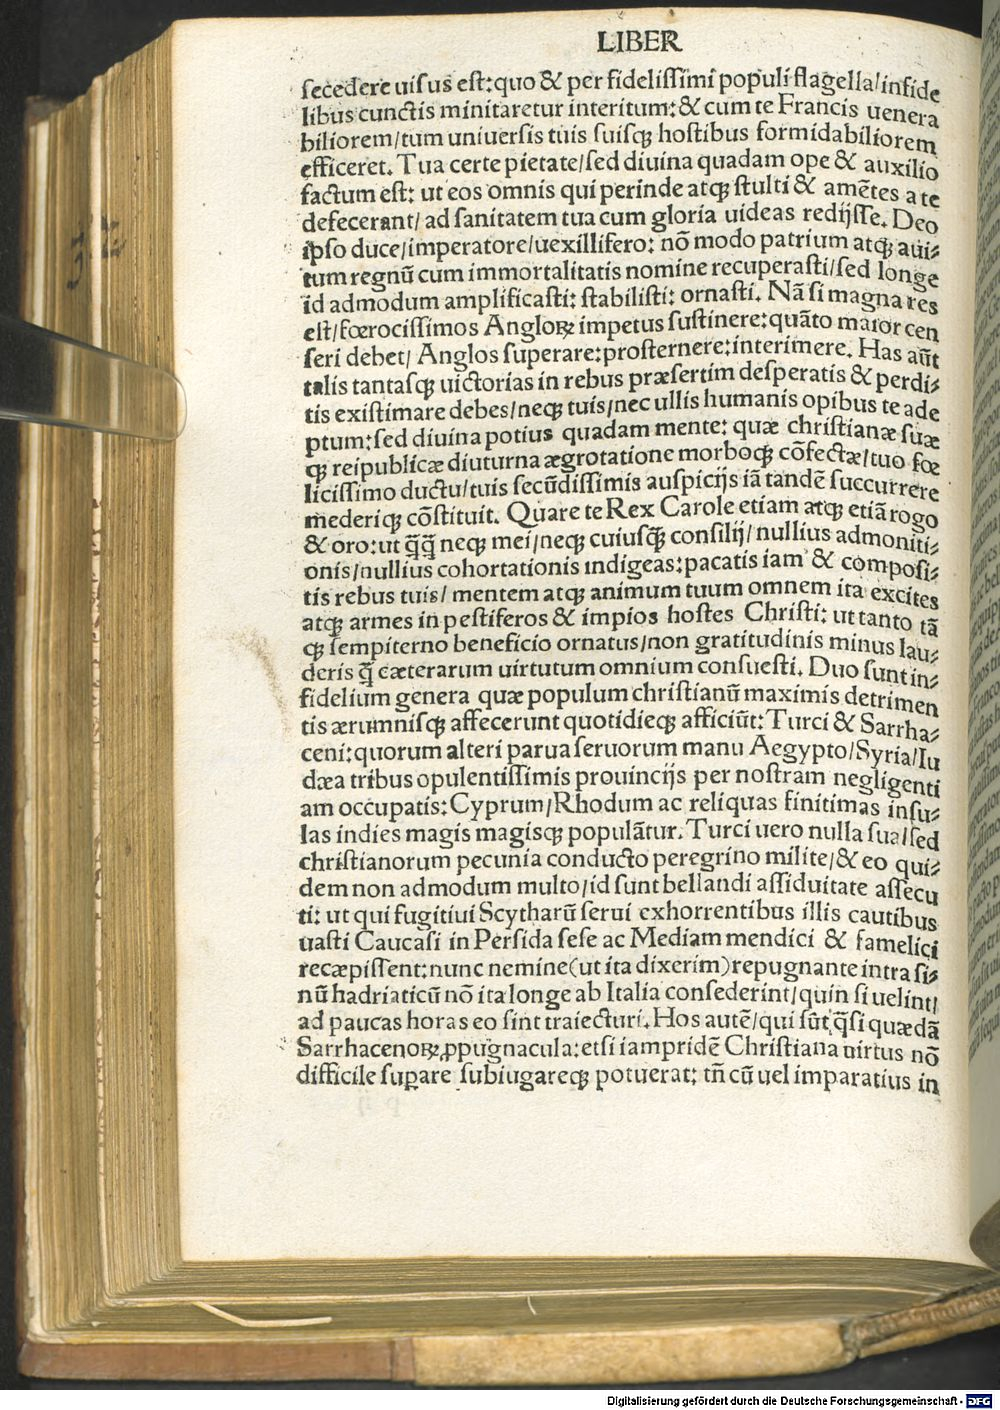 LIBER
secedere uisus est: quo & per fidelissimi populi flagella/infide
libus cunctis minitaretur interitum: & cum te Francis uenera
biliorem/tum uniuersis tuis suisqꝫ hostibus formidabiliorem
efficeret. Tua certe pietate/sed diuina quadam ope & auxilio
factum est: ut eos omnis qui perinde atqꝫ stulti & amẽtes a te
defecerant/ad sanitatem tua cum gloria uideas redijsse. Deo
ipso duce/imperatore/uexillifero: nõ modo patrium atqꝫ aui⸗
tum regnũ cum immortalitatis nomine recuperasti/sed longe
id admodum amplificasti: stabilisti: ornasti. Nã si magna res
est/fœrocissimos Angloꝝ impetus sustinere: quãto maior cen
seri debet/Anglos superare: prosternere: interimere. Has aũt
talis tantasqꝫ uictorias in rebus præsertim desperatis & perdi⸗
tis existimare debes/neqꝫ tuis/nec ullis humanis opibus te ade
ptum: sed diuina potius quadam mente: quæ christianæ suæ
qꝫ reipublicæ diuturna ægrotatione morboqꝫ cõfectæ/tuo fœ
licissimo ductu/tuis secũdissimis auspicijs iã tandẽ succurrere
mederiqꝫ cõstituit. Quare te Rex Carole etiam atqꝫ etiã rogo
& oro: ut q̃q̃ neqꝫ mei/neqꝫ cuiusqꝫ̃ consilij/nullius admoniti⸗
onis/nullius cohortationis indigeas: pacatis iam & composi⸗
tis rebus tuis/mentem atqꝫ animum tuum omnem ita excites
atqꝫ armes in pestiferos & impios hostes Christi: ut tanto tã
qꝫ sempiterno beneficio ornatus/non gratitudinis minus lau⸗
deris q̃ cæterarum uirtutum omnium consuesti. Duo sunt in⸗
fidelium genera quæ populum christianũ maximis detrimen
tis ærumnisqꝫ affecerunt quotidieqꝫ afficiũt: Turci & Sarrha⸗
ceni: quorum alteri parua seruorum manu Aegypto/Syria/Iu
dæa tribus opulentissimis prouincijs per nostram negligenti
am occupatis: Cyprum/Rhodum ac reliquas finitimas insu⸗
las indies magis magisqꝫ populãtur. Turci uero nulla sua/sed
christianorum pecunia conducto peregrino milite/& eo qui⸗
dem non admodum multo/id sunt bellandi assiduitate assecu
ti: ut qui fugitiui Scytharũ serui exhorrentibus illis cautibus
uasti Caucasi in Persida sese ac Mediam mendici & famelici
recæpissent: nunc nemine(ut ita dixerim)repugnante intra si⸗
nũ hadriaticũ nõ ita longe ab Italia consederint/quin si uelint/
ad paucas horas eo sint traiecturi. Hos autẽ/qui sũt q̃si quædã
Sarrhacenoꝝ ꝓpugnacula: etsi iampridẽ Christiana uirtus nõ
difficile suꝑare subiugareqꝫ potuerat: tñ cũ uel imparatius in
Digitalisierung gefördert durch die Deutsche Forschungsgemeinschaft - DFG